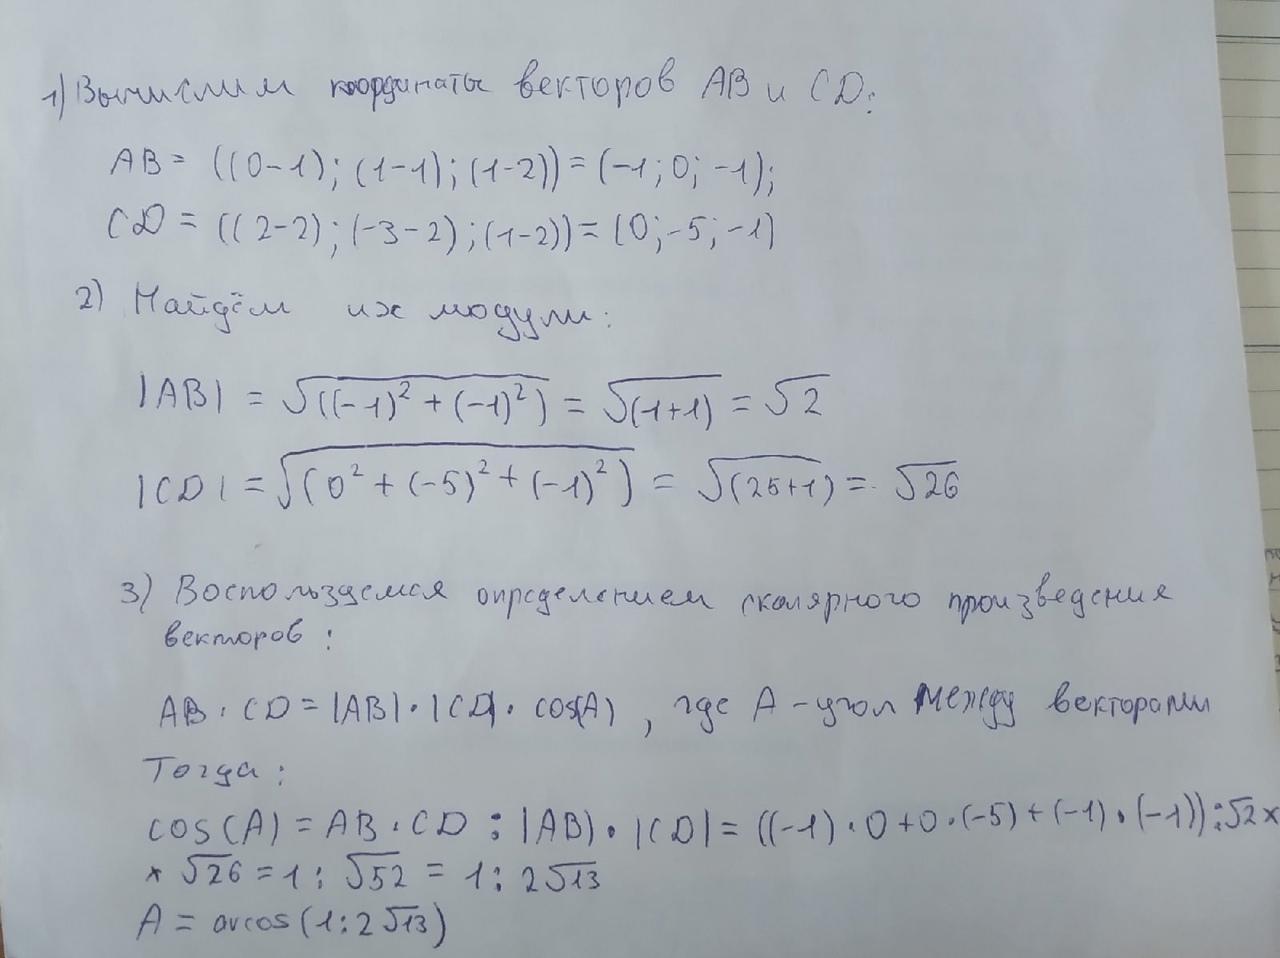 1) Вычислим координаты векторов AB и CD:
AB = ((0-1); (1-1); (1-2)) = (-1; 0; -1);
CD = ((2-2); (-3-2); (1-2)) = (0; -5; -1)
2) Найдём их модули:
|AB| = √((-1)² + (-1)²) = √(1+1) = √2
|CD| = √(0² + (-5)² + (-1)²) = √(25+1) = √26
3) Воспользуемся определением скалярного произведения
векторов:
AB · CD = |AB| · |CD| · cos(A), где A - угол между векторами
Тогда:
cos(A) = AB · CD : |AB| · |CD| = ((-1) · 0 + 0 · (-5) + (-1) · (-1)) : √2 ×
× √26 = 1 : √52 = 1 : 2√13
A = arcos(1 : 2√13)